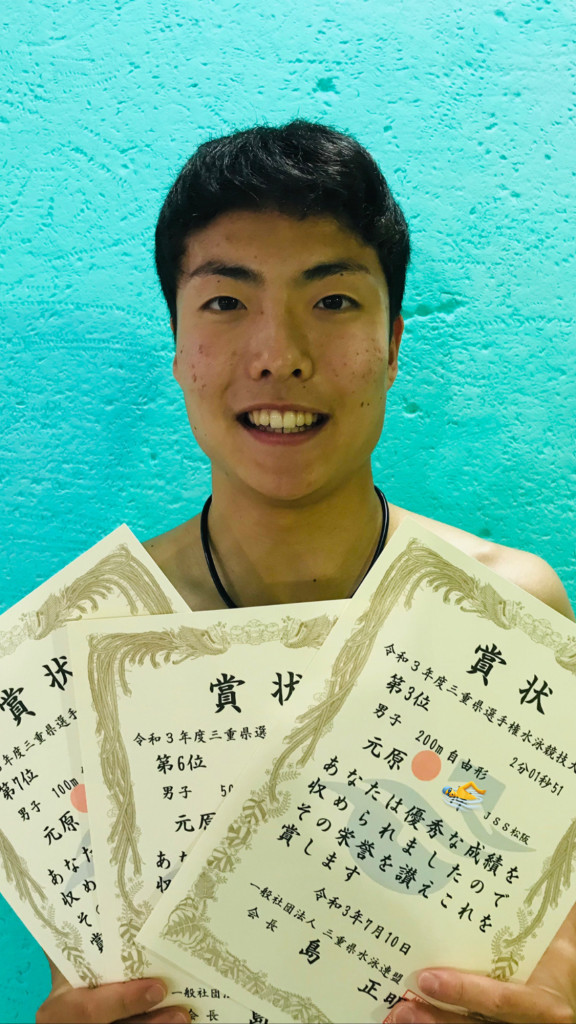 賞状
令和3年度三重県選手
第7位
男子 100m
元原
あなた
収め
その
賞
賞状
令和3年度三重県選
第6位
男子 50
元
あな
収
一般社団
会長
賞状
令和3年度三重県選手権水泳競技大
第3位
男子 200m自由形 2分01秒51
元原 JSS松阪
あなたは優秀な成績を
収められましたので
その栄誉を讃えこれを
賞します
令和3年7月10日
一般社団法人 三重県水泳連盟
会長 島 正